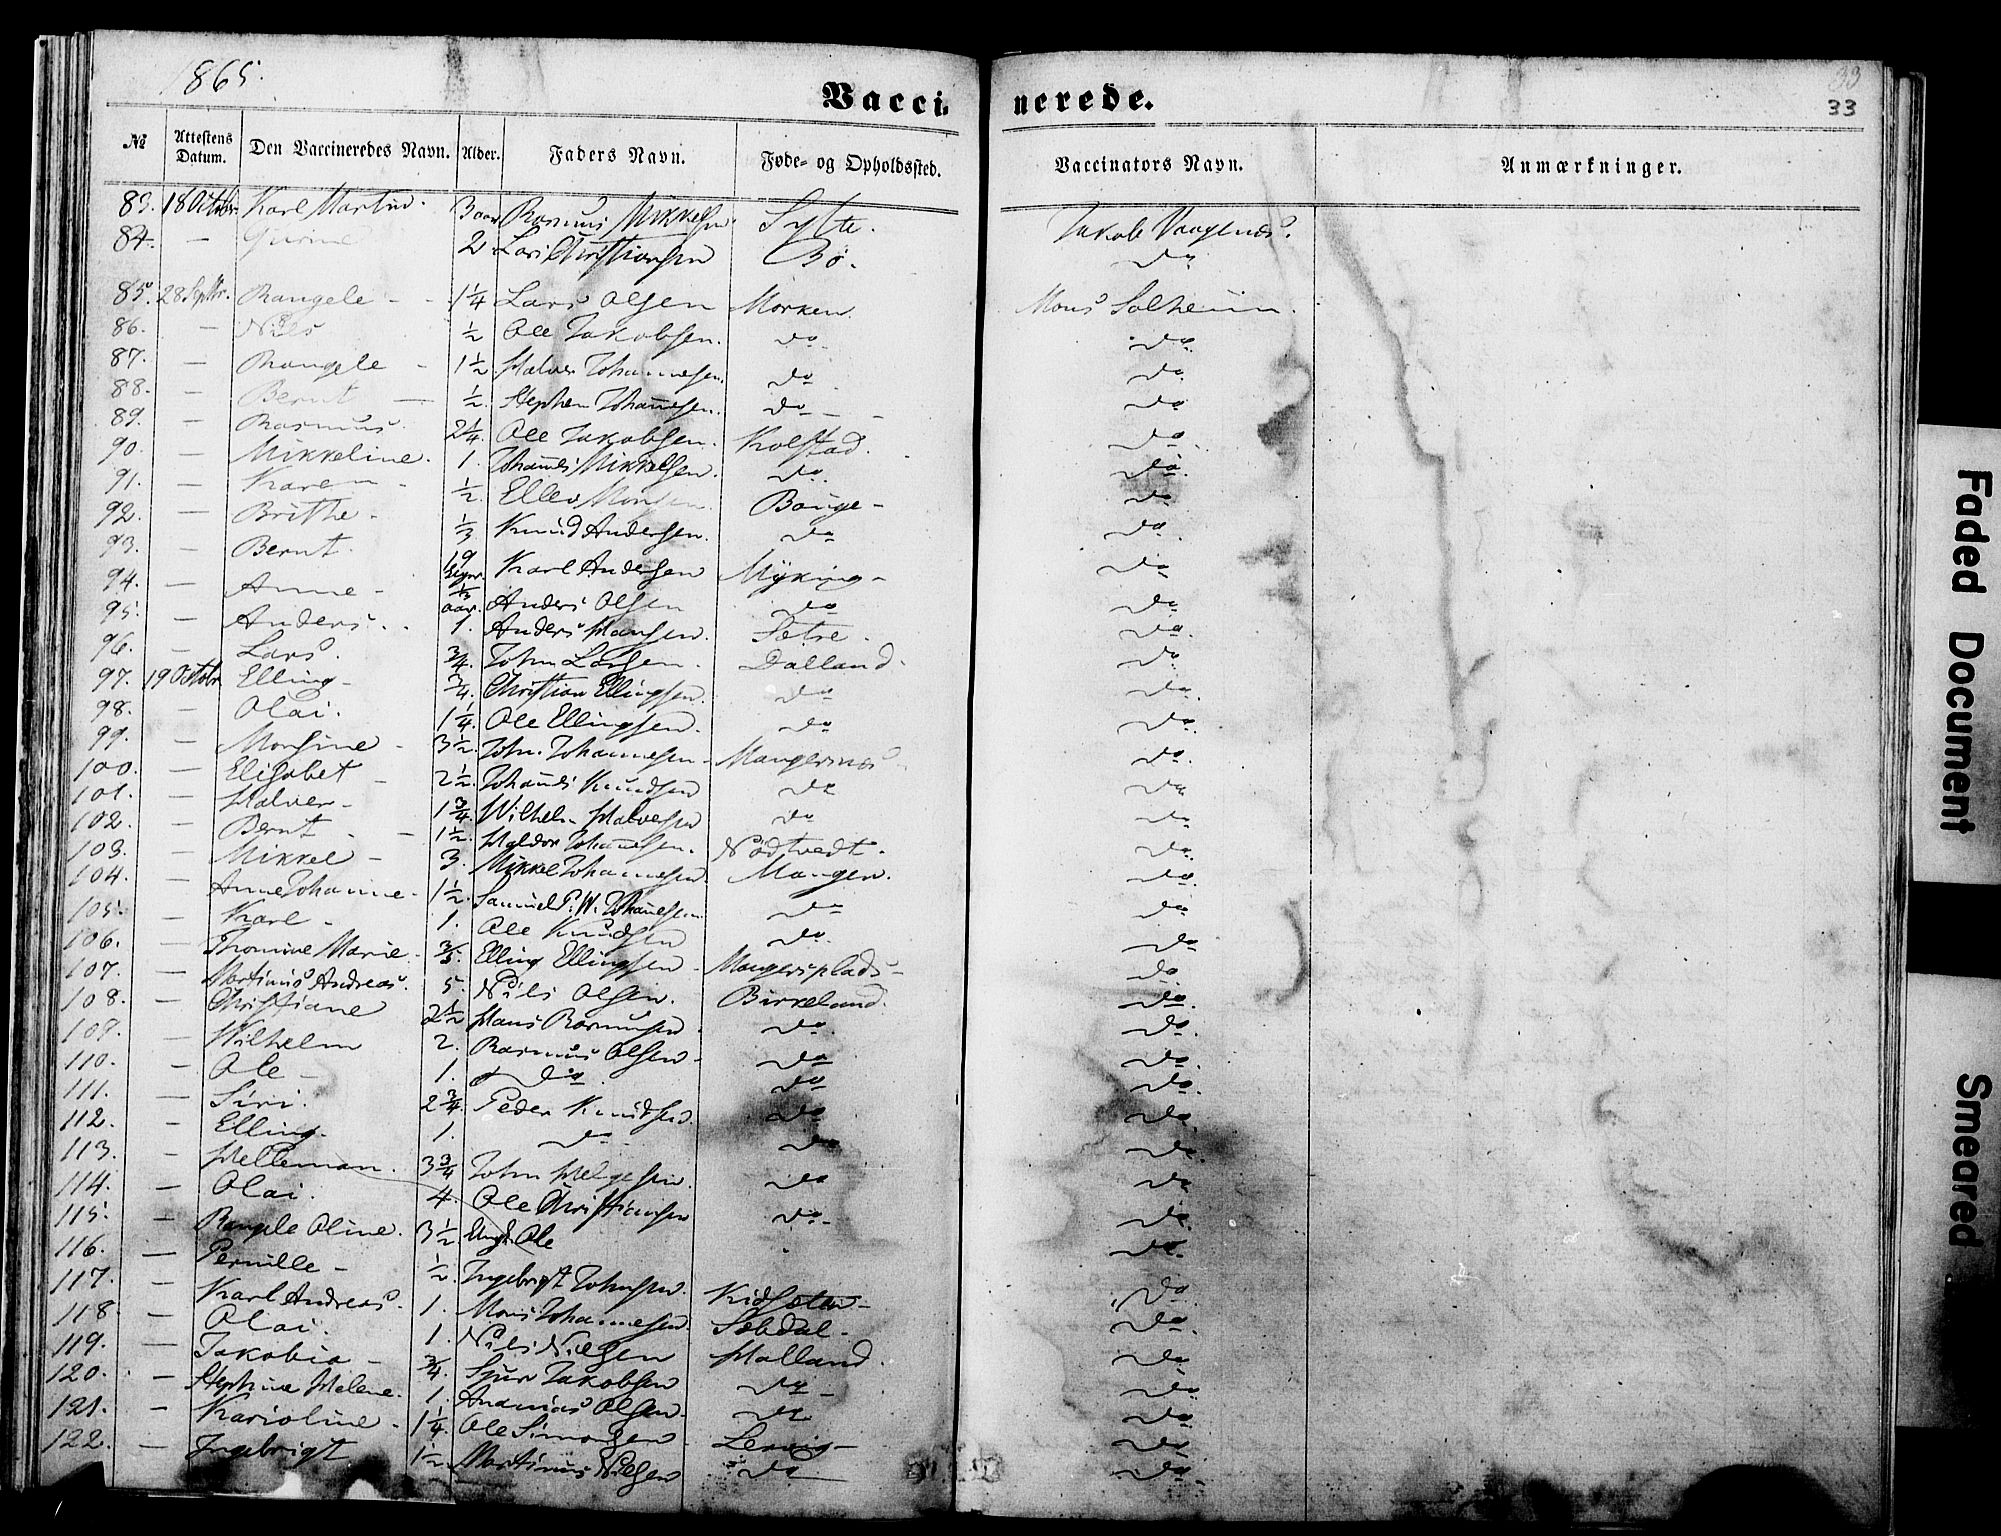 1865.
Vaccinerede.
33
33
№ Attestens Datum. Den Vaccineredes Navn. Alder. Faders Navn. Føde- og Opholdssted. Vaccinators Navn. Anmærkninger.
83. 18 Octobr. Karl Martin. 3 aar Rasmus Mikkelsen Sylte. Jakob Vaagenæs.
84. — Gurine 2 Lars Christiansen Bø. do
85. 28 Septbr. Rangele - 1 1/4 Lars Olsen Morken. Mons Solheim.
86. — Nils 1/2 Ole Jakobsen. do do
87. — Rangele - 1 1/2 Halver Johannesen. do do
88. — Bernt — 1/2. Stephen Johannesen. do do
89. — Rasmus. 2 1/4. Ole Jakobsen. Kolstad. do
90. — Mikkeline. 1. Johannes Mikkelsen. do. do
91. — Karen - 1/2. Ellev Monsen Bouge - do
92. — Brithe - 1/3 Knud Andersen. do do
93. — Bernt. 19 Karl Andersen Myking - do
94. — Anne - 1/3 aar. Anders Olsen do do
95. — Anders. 1. Anders Hansen. Sætre. do
96. — Lars. 3/4. John Larsen. Dalland. do
97. 19 Octobr Elling - 3/4. Christian Ellingsen. do do
98. — Olai. 1 1/4. Ole Ellingsen. do do
99. — Monsine - 3 1/2. John. Johannesen - Mangersnæs do
100. — Elisabet - 2 1/2. Johannes Knudsen do do
101. — Halver - 1 3/4. Wilhelm Halversen do do
102. — Bernt - 1 1/2. Haldor Johannesen. Nødtvedt. do
103. — Mikkel - 3. Mikkel Johannesen. Manger. do
104. — Anne Johanne - 1 1/2. Samuel P. W. Johannesen do do
105. — Karl - 1. Ole Knudsen do do
106. — Thomine Marie. Elling Ellingsen - Mangersplads - do
107. — Martinus Andreas. 5. Nils Olsen. Birkeland. do
108. — Christiane 2 1/2 Hans Rasmusen. do do
109. — Wilhelm 2. Rasmus Olsen - do do
110. — Ole - 1. do do do
111. — Siri. 2 3/4. Peder Knudsen. do do
112. — Elling. 1. do do do
113. — Helleman. 3 3/4 John Helgesen. do do
114. — Olai. 4. Ole Christiansen do do
115. — Rangele Oline. 3 1/2. Ungk. Ole do
116. — Pernille - 1/2. Ingebrigt Johnsen. Kidsæter - do
117. — Karl Andreas. 1. Mons Johannesen. Sæbdal - do
118. — Olai. 1. Nils Nilsen Halland. do
119. — Jakobia - 3/4. Sjur Jakobsen do do
120. — Stephine Helene. 1. Ananias Olsen. do do
121. — Karioline - 1 1/4. Ole Simonsen Lervig - do
122. — Ingebrigt 1 1/2. Martinus Nilsen do do
Faded Document
Smeared